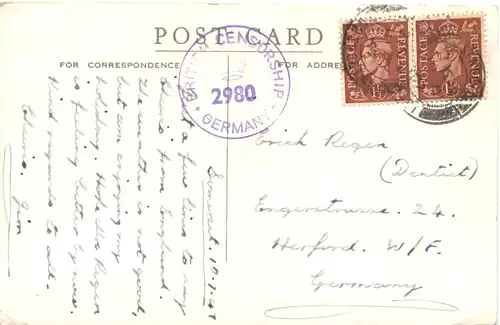 POST CARD
FOR CORRESPONDENCE
FOR ADDRESS
BRITISH CENSORSHIP
2980
GERMANY
POSTAGE REVENUE
1½D
POSTAGE REVENUE
1½D
Somerset. 10.1.48
Just a few lines to say
cheerio from England.
The weather is not good,
but am enjoying my
holiday. Hope Mrs Regen
is feeling better by now.
Kind regards to all.
Cheerio. Jim
Erich Regen
(Dentist)
Engerstrasse. 24.
Herford. W/F.
Germany